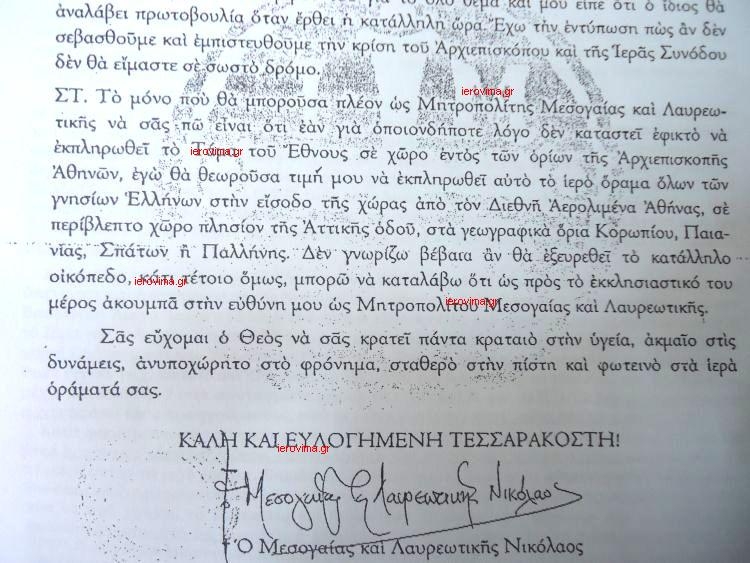 γιὰ τὸ ὅλο θέμα καὶ μοῦ εἶπε ὅτι ὁ ἴδιος θὰ
ἀναλάβει πρωτοβουλία ὅταν ἔρθει ἡ κατάλληλη ὥρα. Ἔχω τὴν ἐντύπωση πὼς ἂν δὲν
σεβασθοῦμε καὶ ἐμπιστευθοῦμε τὴν κρίση τοῦ Ἀρχιεπισκόπου καὶ τῆς Ἱερᾶς Συνόδου
δὲν θὰ εἴμαστε σὲ σωστὸ δρόμο.
ierovima.gr
ΣΤ. Τὸ μόνο ποὺ θὰ μποροῦσα πλέον ὡς Μητροπολίτης Μεσογαίας καὶ Λαυρεω-
τικῆς νὰ σᾶς πῶ εἶναι ὅτι ἐὰν γιὰ ὁποιονδήποτε λόγο δὲν καταστεῖ ἐφικτὸ νὰ
ἐκπληρωθεῖ τὸ Τάμα τοῦ Ἔθνους σὲ χῶρο ἐντὸς τῶν ὁρίων τῆς Ἀρχιεπισκοπῆς
ierovima.gr
Ἀθηνῶν, ἐγὼ θὰ θεωροῦσα τιμή μου νὰ ἐκπληρωθεῖ αὐτὸ τὸ ἱερὸ ὅραμα ὅλων τῶν
γνησίων Ἑλλήνων στὴν εἴσοδο τῆς χώρας ἀπὸ τὸν Διεθνῆ Ἀερολιμένα Ἀθήνας, σὲ
περίβλεπτο χῶρο πλησίον τῆς Ἀττικῆς ὁδοῦ, στὰ γεωγραφικὰ ὅρια Κορωπίου, Παια-
νίας, Σπάτων ἢ Παλλήνης. Δὲν γνωρίζω βέβαια ἂν θὰ ἐξευρεθεῖ τὸ κατάλληλο
οἰκόπεδο, κάτι τέτοιο ὅμως, μπορῶ νὰ καταλάβω ὅτι ὡς πρὸς τὸ ἐκκλησιαστικό του
ierovima.gr
μέρος ἀκουμπᾶ στὴν εὐθύνη μου ὡς Μητροπολίτου Μεσογαίας καὶ Λαυρεωτικῆς.
ierovima.gr
Σᾶς εὔχομαι ὁ Θεὸς νὰ σᾶς κρατεῖ πάντα κραταιὸ στὴν ὑγεία, ἀκμαῖο στὶς
δυνάμεις, ἀνυποχώρητο στὸ φρόνημα, σταθερὸ στὴν πίστη καὶ φωτεινὸ στὰ ἱερὰ
ὁράματά σας.
ΚΑΛΗ ΚΑΙ ΕΥΛΟΓΗΜΕΝΗ ΤΕΣΣΑΡΑΚΟΣΤΗ!
ierovima.gr
Μεσογαίας & Λαυρεωτικῆς Νικόλαος
Ὁ Μεσογαίας καὶ Λαυρεωτικῆς Νικόλαος